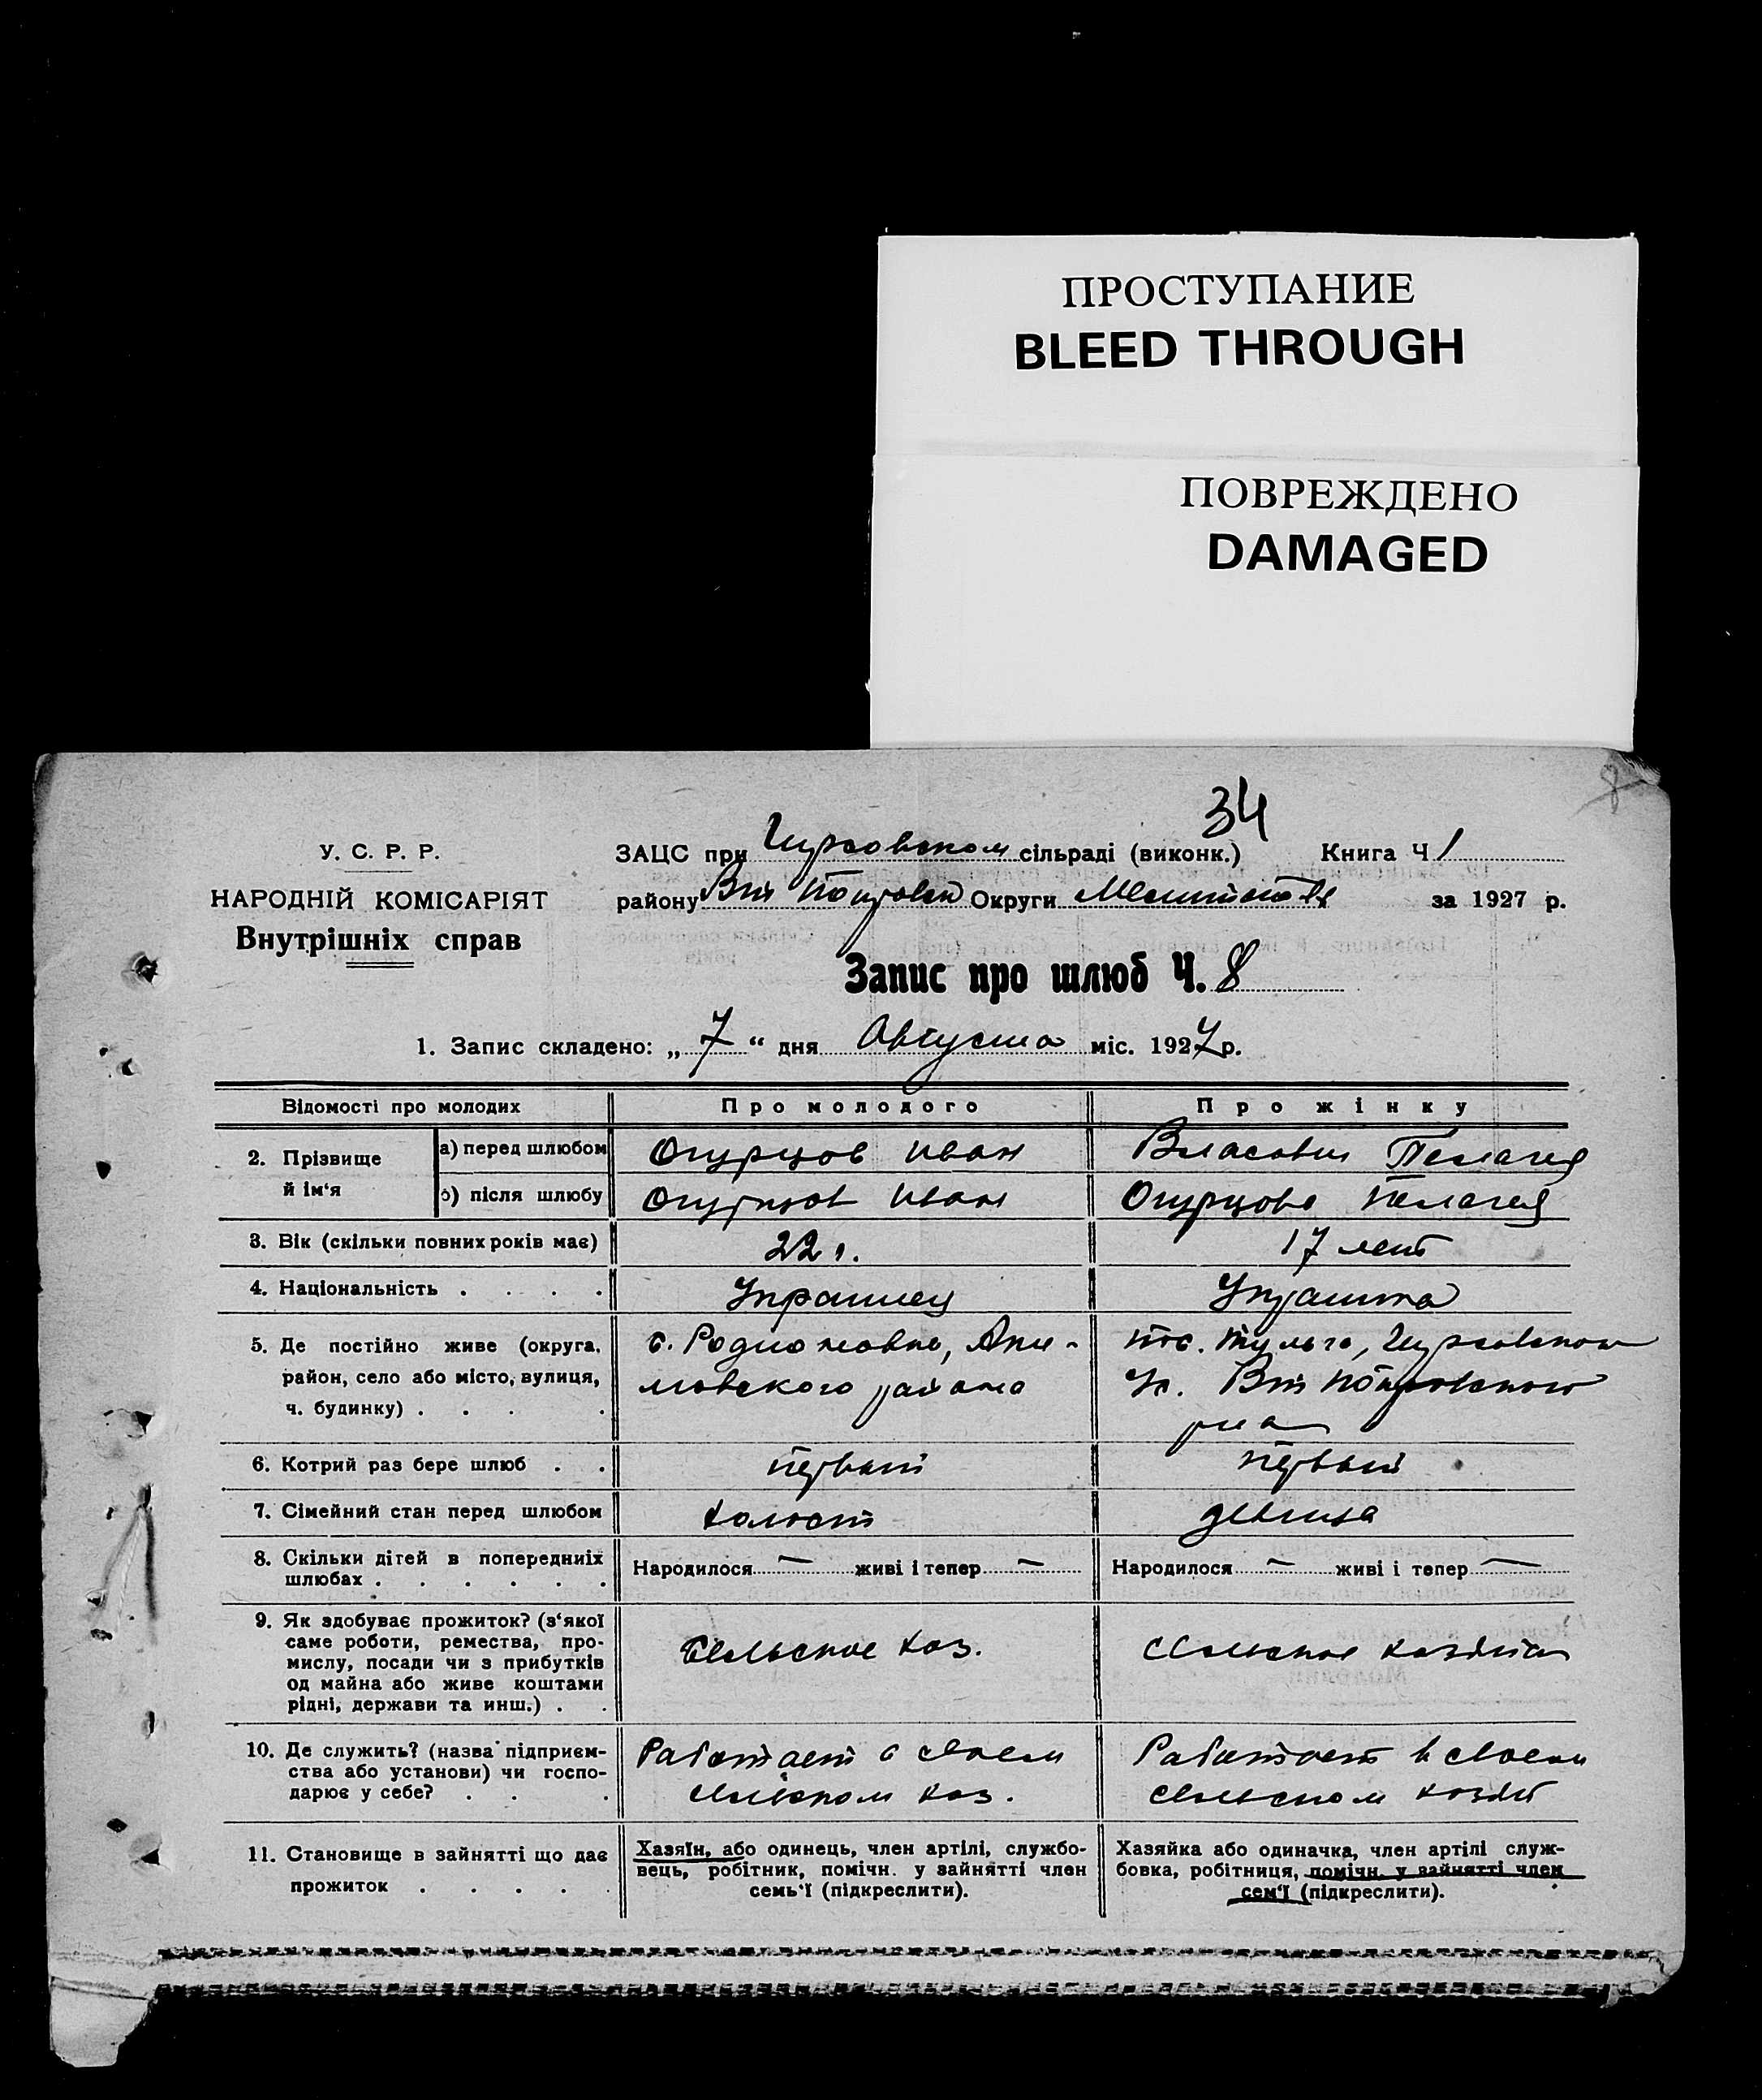 ПРОСТУПАНИЕ
BLEED THROUGH
ПОВРЕЖДЕНО
DAMAGED
8
34
У. С. Р. Р.
НАРОДНІЙ КОМІСАРІЯТ
Внутрішніх справ
ЗАЦС при Гирсовском сільраді (виконк.) Книга Ч 1
району Округи за 1927 р.
Запис про шлюб Ч. 8
1. Запис складено: „ 7 “ дня Августа міс. 1927 р.
Відомості про молодих Про молодого Про жінку
2. Прізвище й ім‘я
а) перед шлюбом Огурцов Иван Пелагея
б) після шлюбу Огурцов Иван Огурцова Пелагея
3. Вік (скільки повних років має) 22 г. 17 лет
4. Національність . . . . Украинец Украинка
5. Де постійно живе (округа, район, село або місто, вулиця, ч. будинку) . . . .
с. Родионовка, Аки-
мовского района
6. Котрий раз бере шлюб . . первый первый
7. Сімейний стан перед шлюбом холост девица
8. Скільки дітей в попередниіх шлюбах . . . . . .
Народилося — живі і тепер — Народилося — живі і тепер —
9. Як здобуває прожиток? (з‘якої
саме роботи, ремества, про-
мислу, посади чи з прибутків
од майна або живе коштами
рідні, держави та инш.) . .
Сельское хоз. Сельское
10. Де служить? (назва підприєм-
ства або установи) чи госпо-
дарює у себе? . . .
Работает в своем
сельском хоз.
Работает в своем
сельском
11. Становище в зайнятті що дає
прожиток . . . . .
Хазяїн, або одинець, член артілі, службо-
вець, робітник, помічн. у зайнятті член
семь‘ї (підкреслити).
Хазяйка або одиначка, член артілі служ-
бовка, робітниця, помічн. у зайнятті член
сем‘ї (підкреслити).